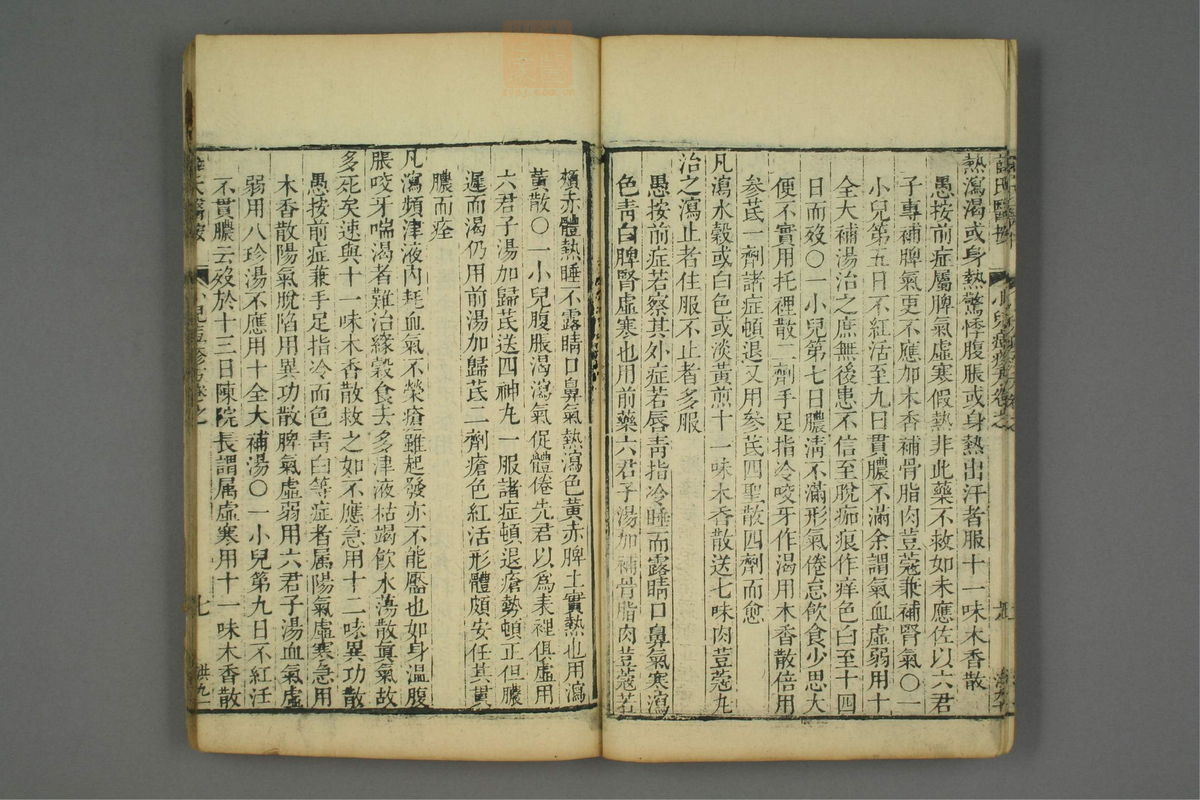 熱瀉渴或身熱驚悸腹脹或身熱出汗者服十一味木香散
愚按前症屬脾氣虛寒假熱非此藥不救如未應佐以六君
子專補脾氣更不應加木香補骨脂肉荳蔻兼補腎氣〇一
小兒第五日不紅活至九日貫膿不滿余謂氣血虛弱用十
全大補湯治之庶無後患不信至脫痂痕作痒色白至十四
日而歿〇一小兒第七日膿清不滿形氣倦怠飲食少思大
便不實用托裡散二劑手足指冷咬牙作渴用木香散倍用
參芪一劑諸症頓退又用參芪四聖散四劑而愈
凡瀉水穀或白色或淡黃煎十一味木香散送七味肉荳蔻丸
治之瀉止者住服不止者多服
愚按前症若察其外症若唇青指冷睡而露睛口鼻氣寒瀉
色青白脾腎虛寒也用前藥六君子湯加補骨脂肉荳蔻若
頰赤體熱睡不露睛口鼻氣熱瀉色黃赤脾土實熱也用瀉
黃散〇一小兒腹脹渴瀉氣促體倦先君以爲表裡俱虛用
六君子湯加歸芪送四神丸一服諸症頓退瘡勢頓正但膿
遲而渴仍用前湯加歸芪二劑瘡色紅活形體頗安任其貫
膿而痊
凡瀉頻津液內耗血氣不榮瘡雖起發亦不能靨也如身溫腹
脹咬牙喘渴者難治緣穀食去多津液枯竭飲水蕩散眞氣故
多死矣速與十一味木香散救之如不應急用十二味異功散
愚按前症兼手足指冷而色青白等症者屬陽氣虛寒急用
木香散陽氣脫陷用異功散脾氣虛弱用六君子湯血氣虛
弱用八珍湯不應用十全大補湯〇一小兒第九日不紅活
不貫膿云歿於十三日陳院長謂属虛寒用十一味木香散
七